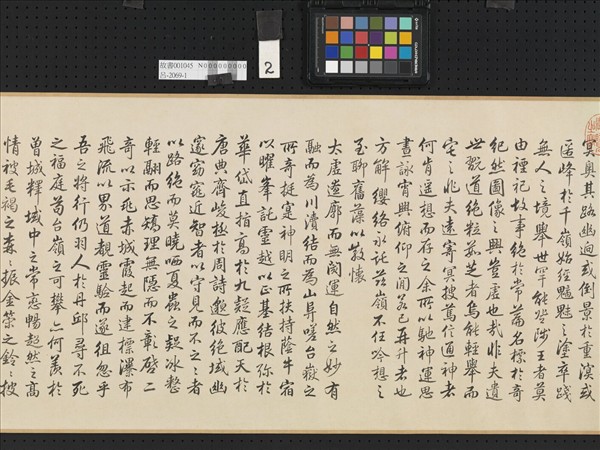 故書001045 N000000000
呂-2069-1
2
冥奥其路幽迥或倒景於重溟或
匿峰於千嶺始經魑魅之塗卒踐
無人之境舉世罕能登陟王者莫
由禋祀故事絶於常篇名標於奇
紀然圖像之興豈虛也哉非夫遺
世翫道絶粒茹芝者烏能輕舉而
宅之非夫遠寄冥搜篤信通神者
何肯遥想而存之余所以馳神運思
晝詠宵興俯仰之間若已再升者也
方解纓絡永託茲嶺不任吟想之
至聊奮藻以散懷
太虛遼廓而無閡運自然之妙有
融而為川瀆結而為山阜嗟台嶽之
所奇挺寔神明之所扶持蔭牛宿
以曜峯託靈越以正基結根弥於
華岱直指高於九疑應配天於
唐典齊峻極於周詩邈彼絶域幽
邃窈窕近智者以守見而不之之者
以路絶而莫曉哂夏蟲之疑冰整
輕翮而思矯理無隱而不彰啓二
奇以示兆赤城霞起而建標瀑布
飛流以界道覩靈驗而遂徂忽乎
吾之將行仍羽人於丹邱尋不死
之福庭苟台嶺之可攀亦何羨於
曾城釋域中之常戀暢超然之高
情被毛褐之森森振金策之鈴鈴披